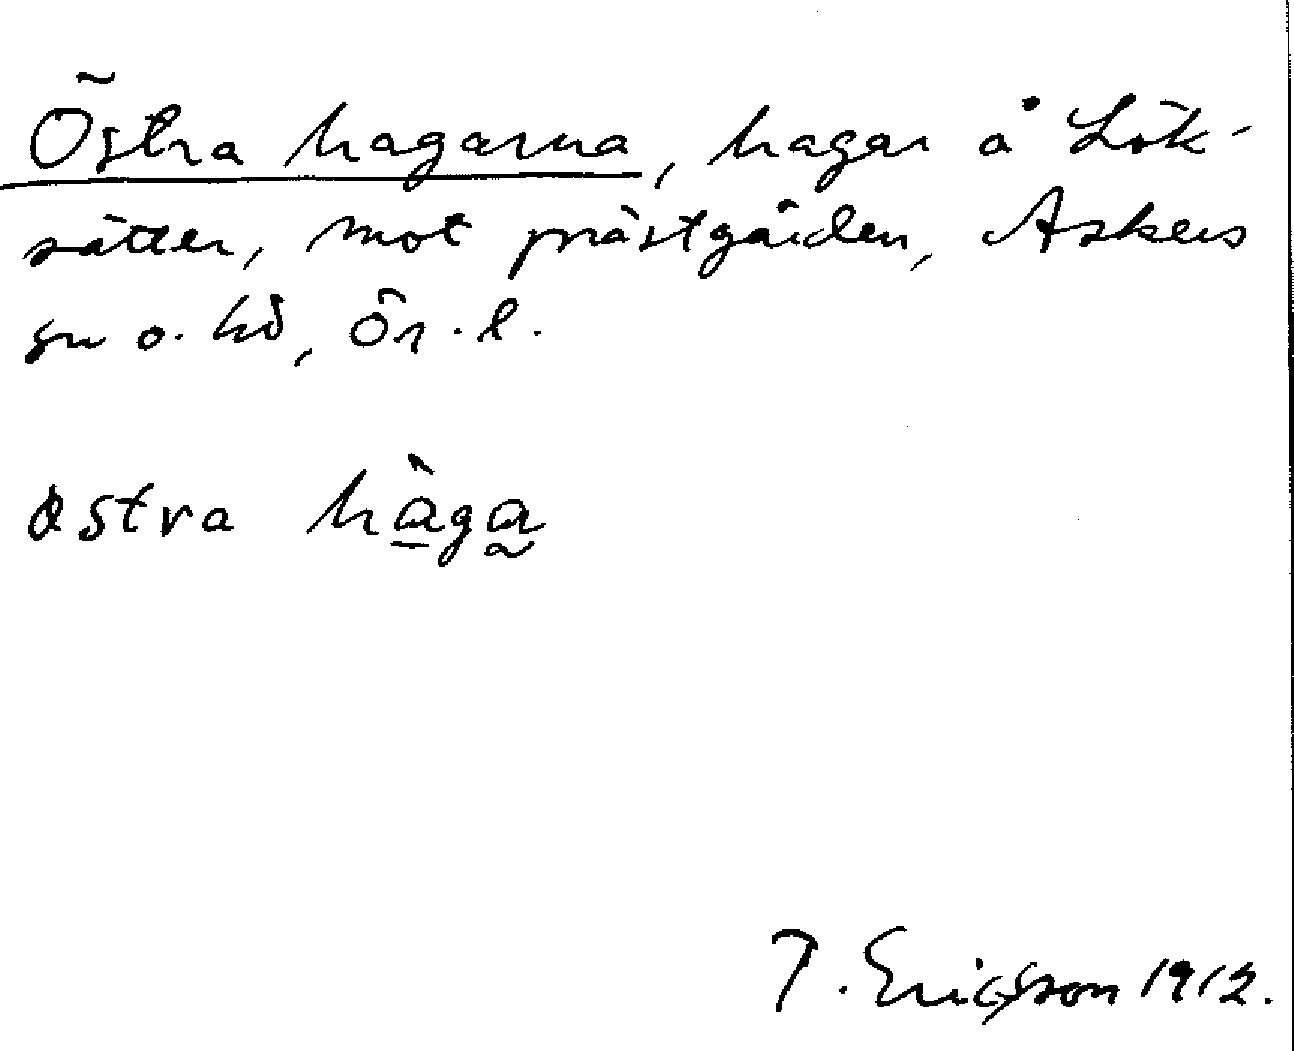 Östra hagarna, hagar å Lök-
sätter, mot prästgården, Askers
sn o. hd, Ör. l.
östra hàga
T. Ericsson 1912.